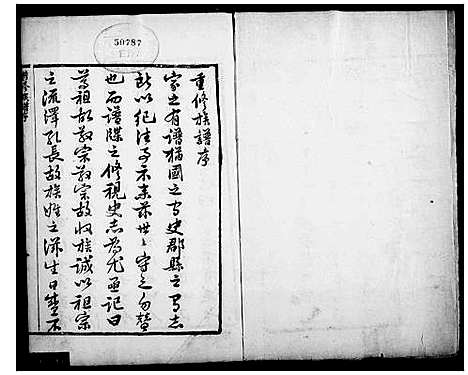 50787
重修族譜序
家之有譜猶國之有史郡縣之有志
所以紀往事示來茲世〻守之勿替
也而譜牒之修視史志為尤亟記曰
尊祖故敬宗敬宗故收族誠以祖宗
之流澤孔長故族姓之
生日